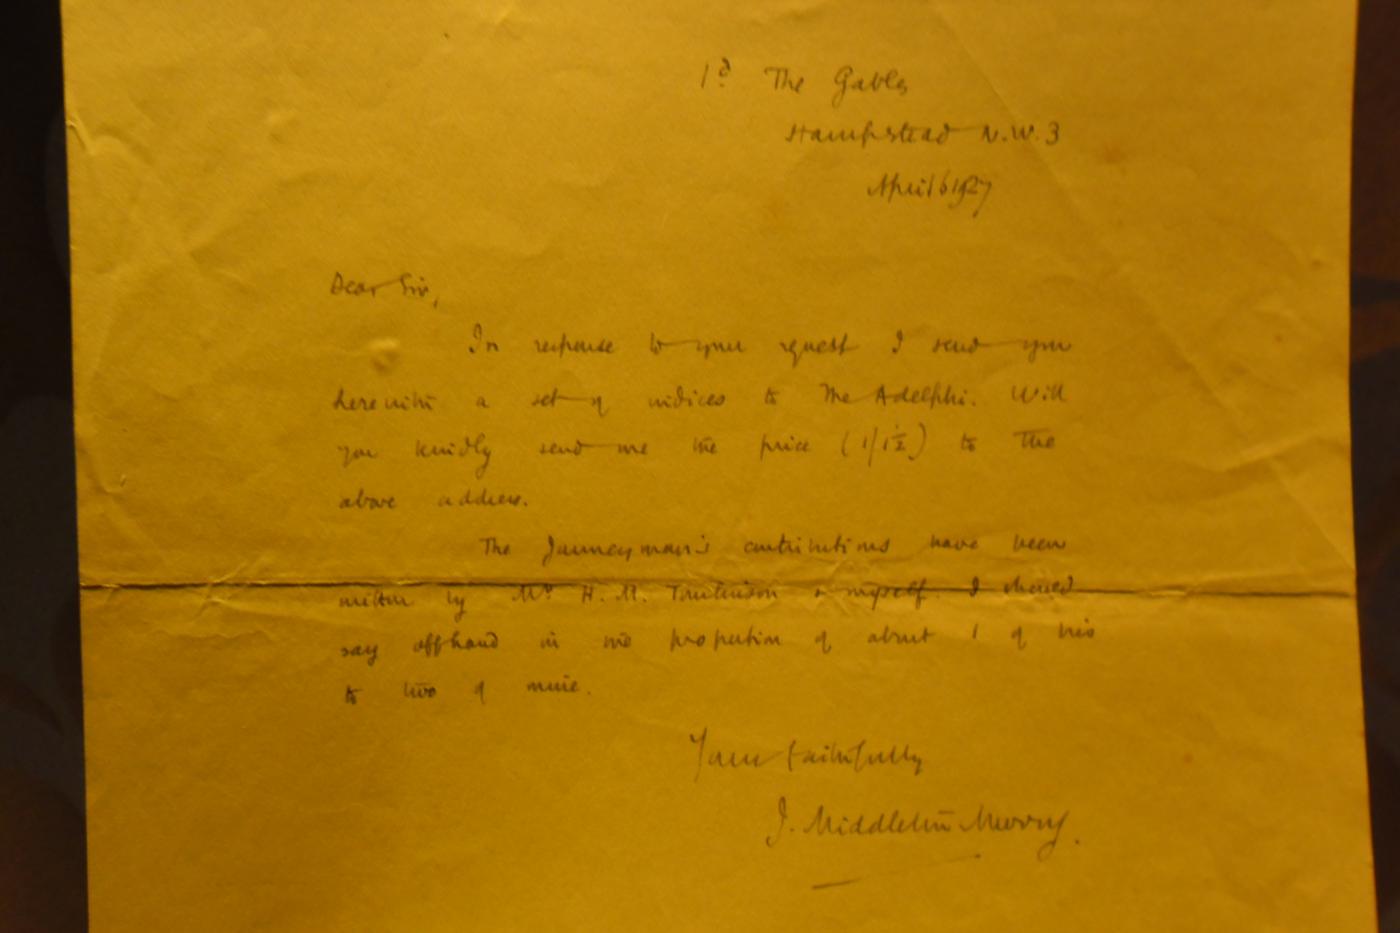 1a The Gables
Hampstead N.W.3
April 6 1927
Dear Sir,
In response to your request I send you
herewith a set of indices to The Adelphi. Will
you kindly send me the price (1/1½) to the
above address.
The Journeyman's contributions have been
written by Mr H. M. Tomlinson & myself. I should
say offhand in the proportion of about 1 of his
to two of mine.
Yours faithfully
J. Middleton Murry.